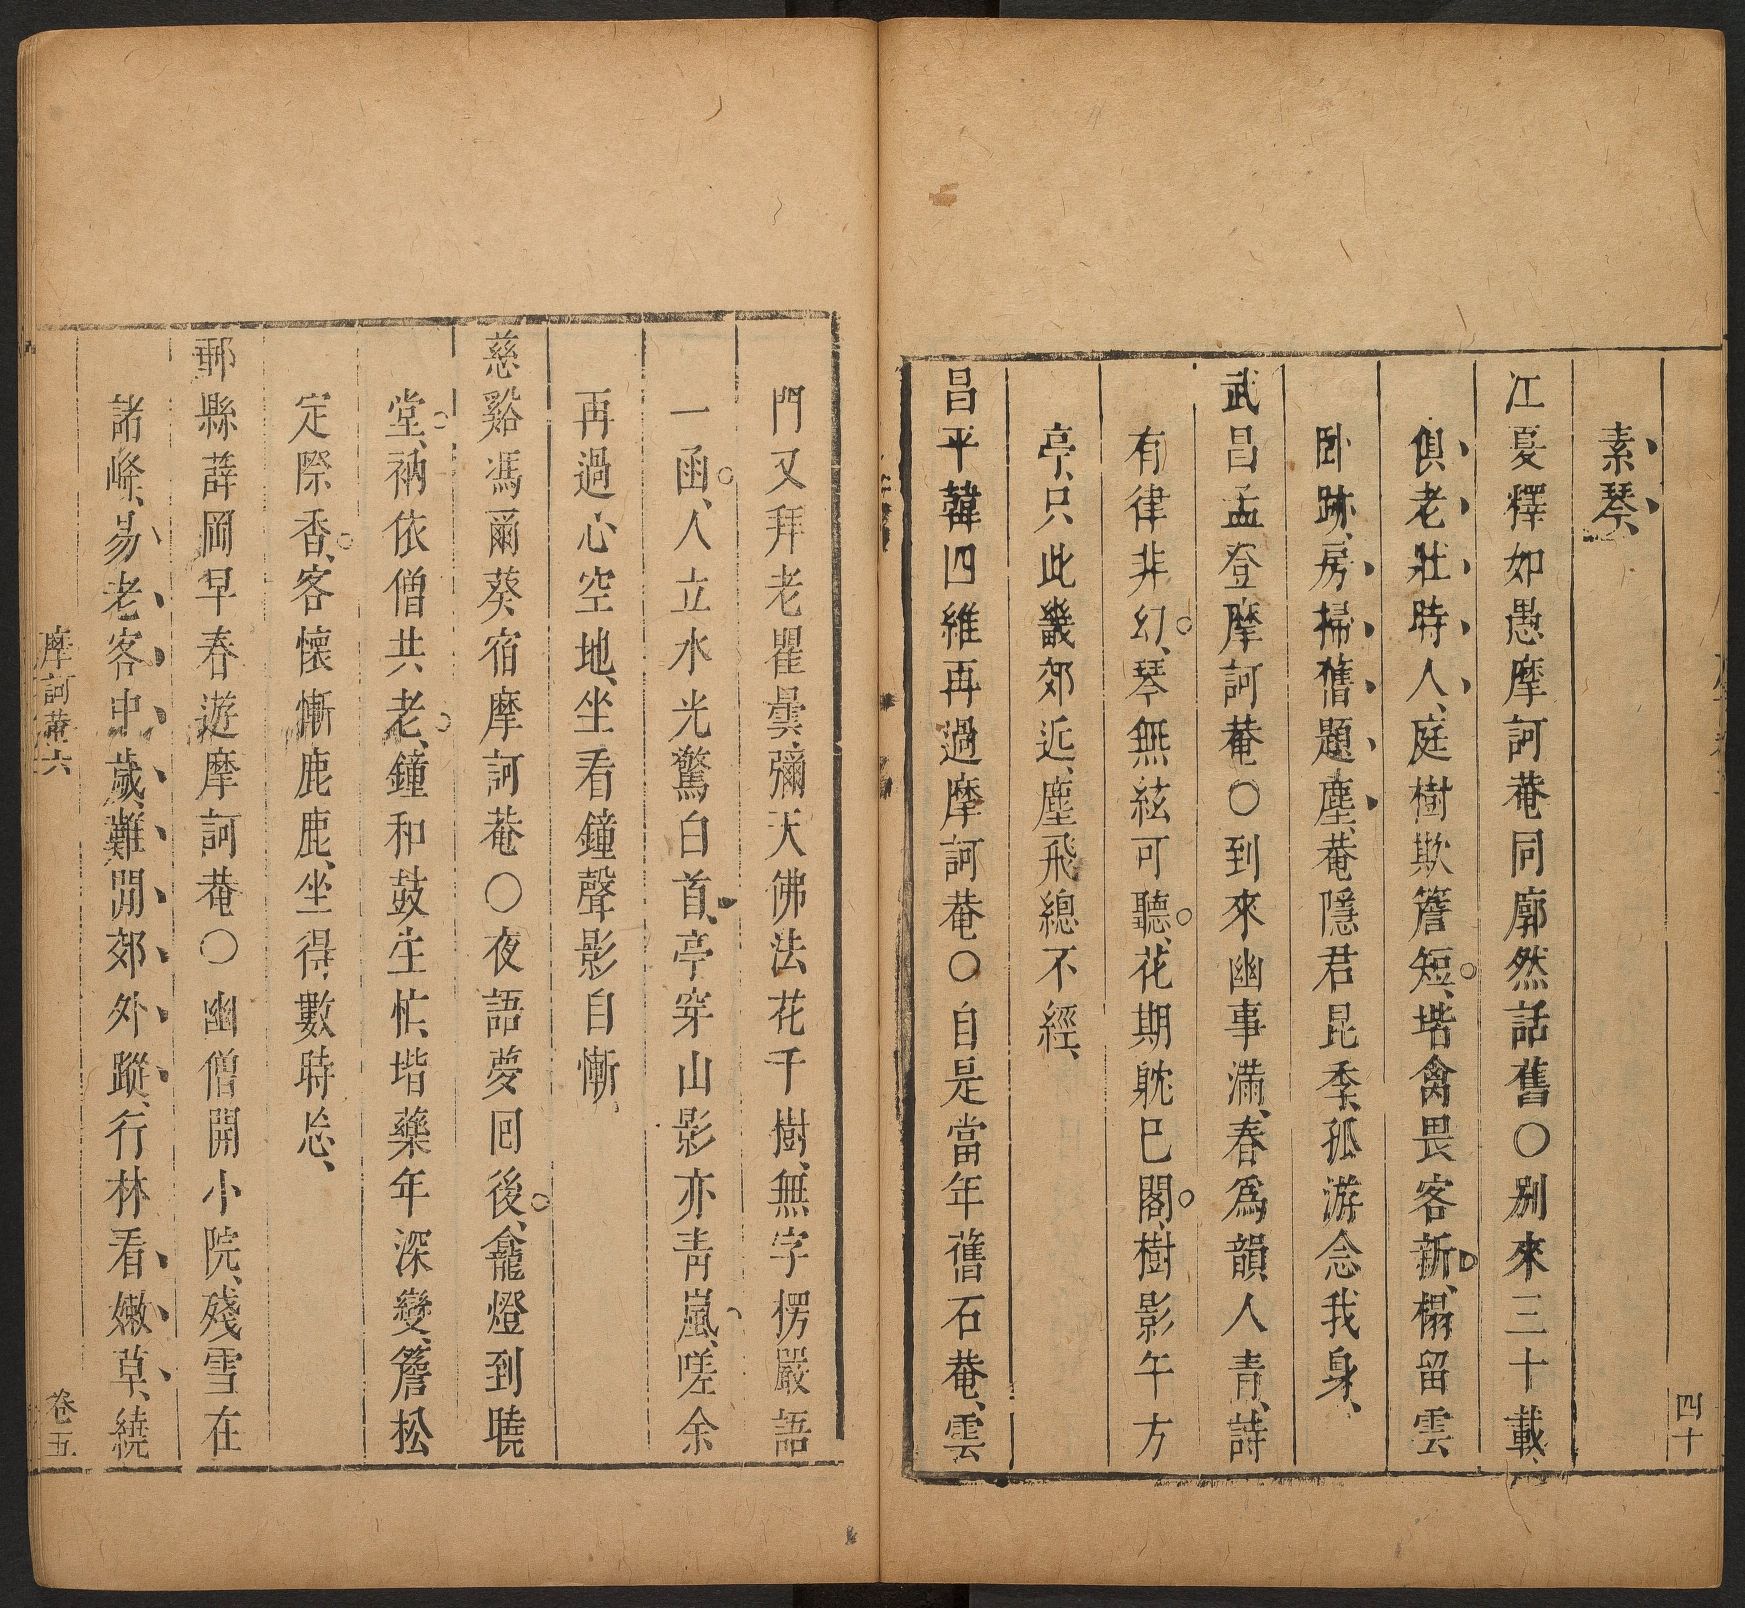 素琴、
江夏釋如愚摩訶菴同廓然話舊○别來三十載、
俱老壯時人、庭樹欺簷短、堦禽畏客新、榻留雲
卧跡、房掃舊題塵、菴隱君昆季、孤游念我身、
武昌孟登摩訶菴○到來幽事滿、春爲韻人青、詩
有律非幻、琴無絃可聽、花期躭巳閣、樹影午方
亭、只此畿郊近、塵飛總不經、
昌平韓四維再過摩訶菴○自是當年舊石菴、雲
四十
門又拜老瞿曇、彌天佛法花千樹、無字楞嚴語
一函、人立水光驚白首、亭穿山影亦青嵐、嗟余
再過心空地、坐看鐘聲影自慚、
慈谿馮爾葵宿摩訶菴○夜語夢回後、龕燈到曉
堂、衲依僧共老、鐘和鼓生忙、堦藥年深變、簷松
定際香、客懷慚鹿鹿、坐得數時忘、
鄞縣薛岡早春遊摩訶菴○幽僧開小院、殘雪在
諸峰、易老客中歲、難閒郊外蹤、行林看嫩草、繞
摩訶菴六
卷五